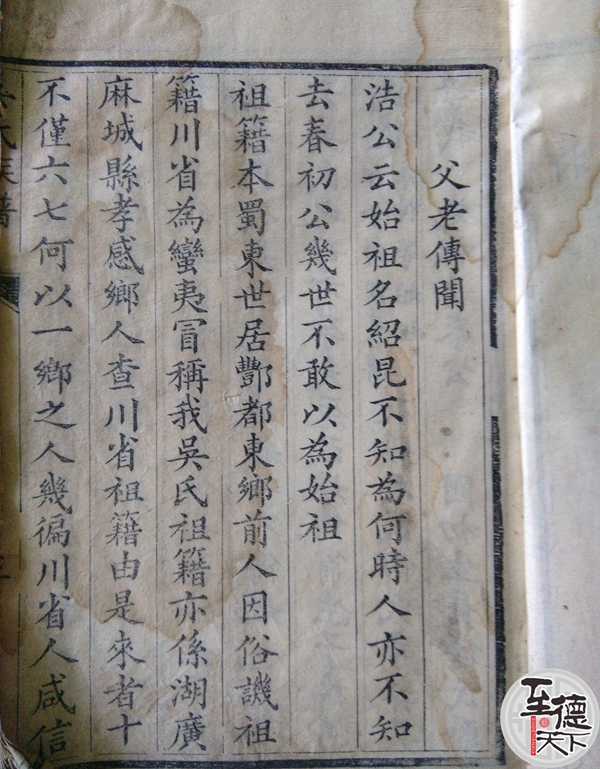 父老傳聞
浩公云始祖名紹昆不知為何時人亦不知
去春初公幾世不敢以為始祖
祖籍本蜀東世居酆都東鄉前人因俗譏祖
籍川省為蠻夷冒稱我吳氏祖籍亦係湖廣
麻城縣孝感鄉人查川省祖籍由是來者十
不僅六七何以一鄉之人幾徧川省人咸信
氏族譜
至德天下